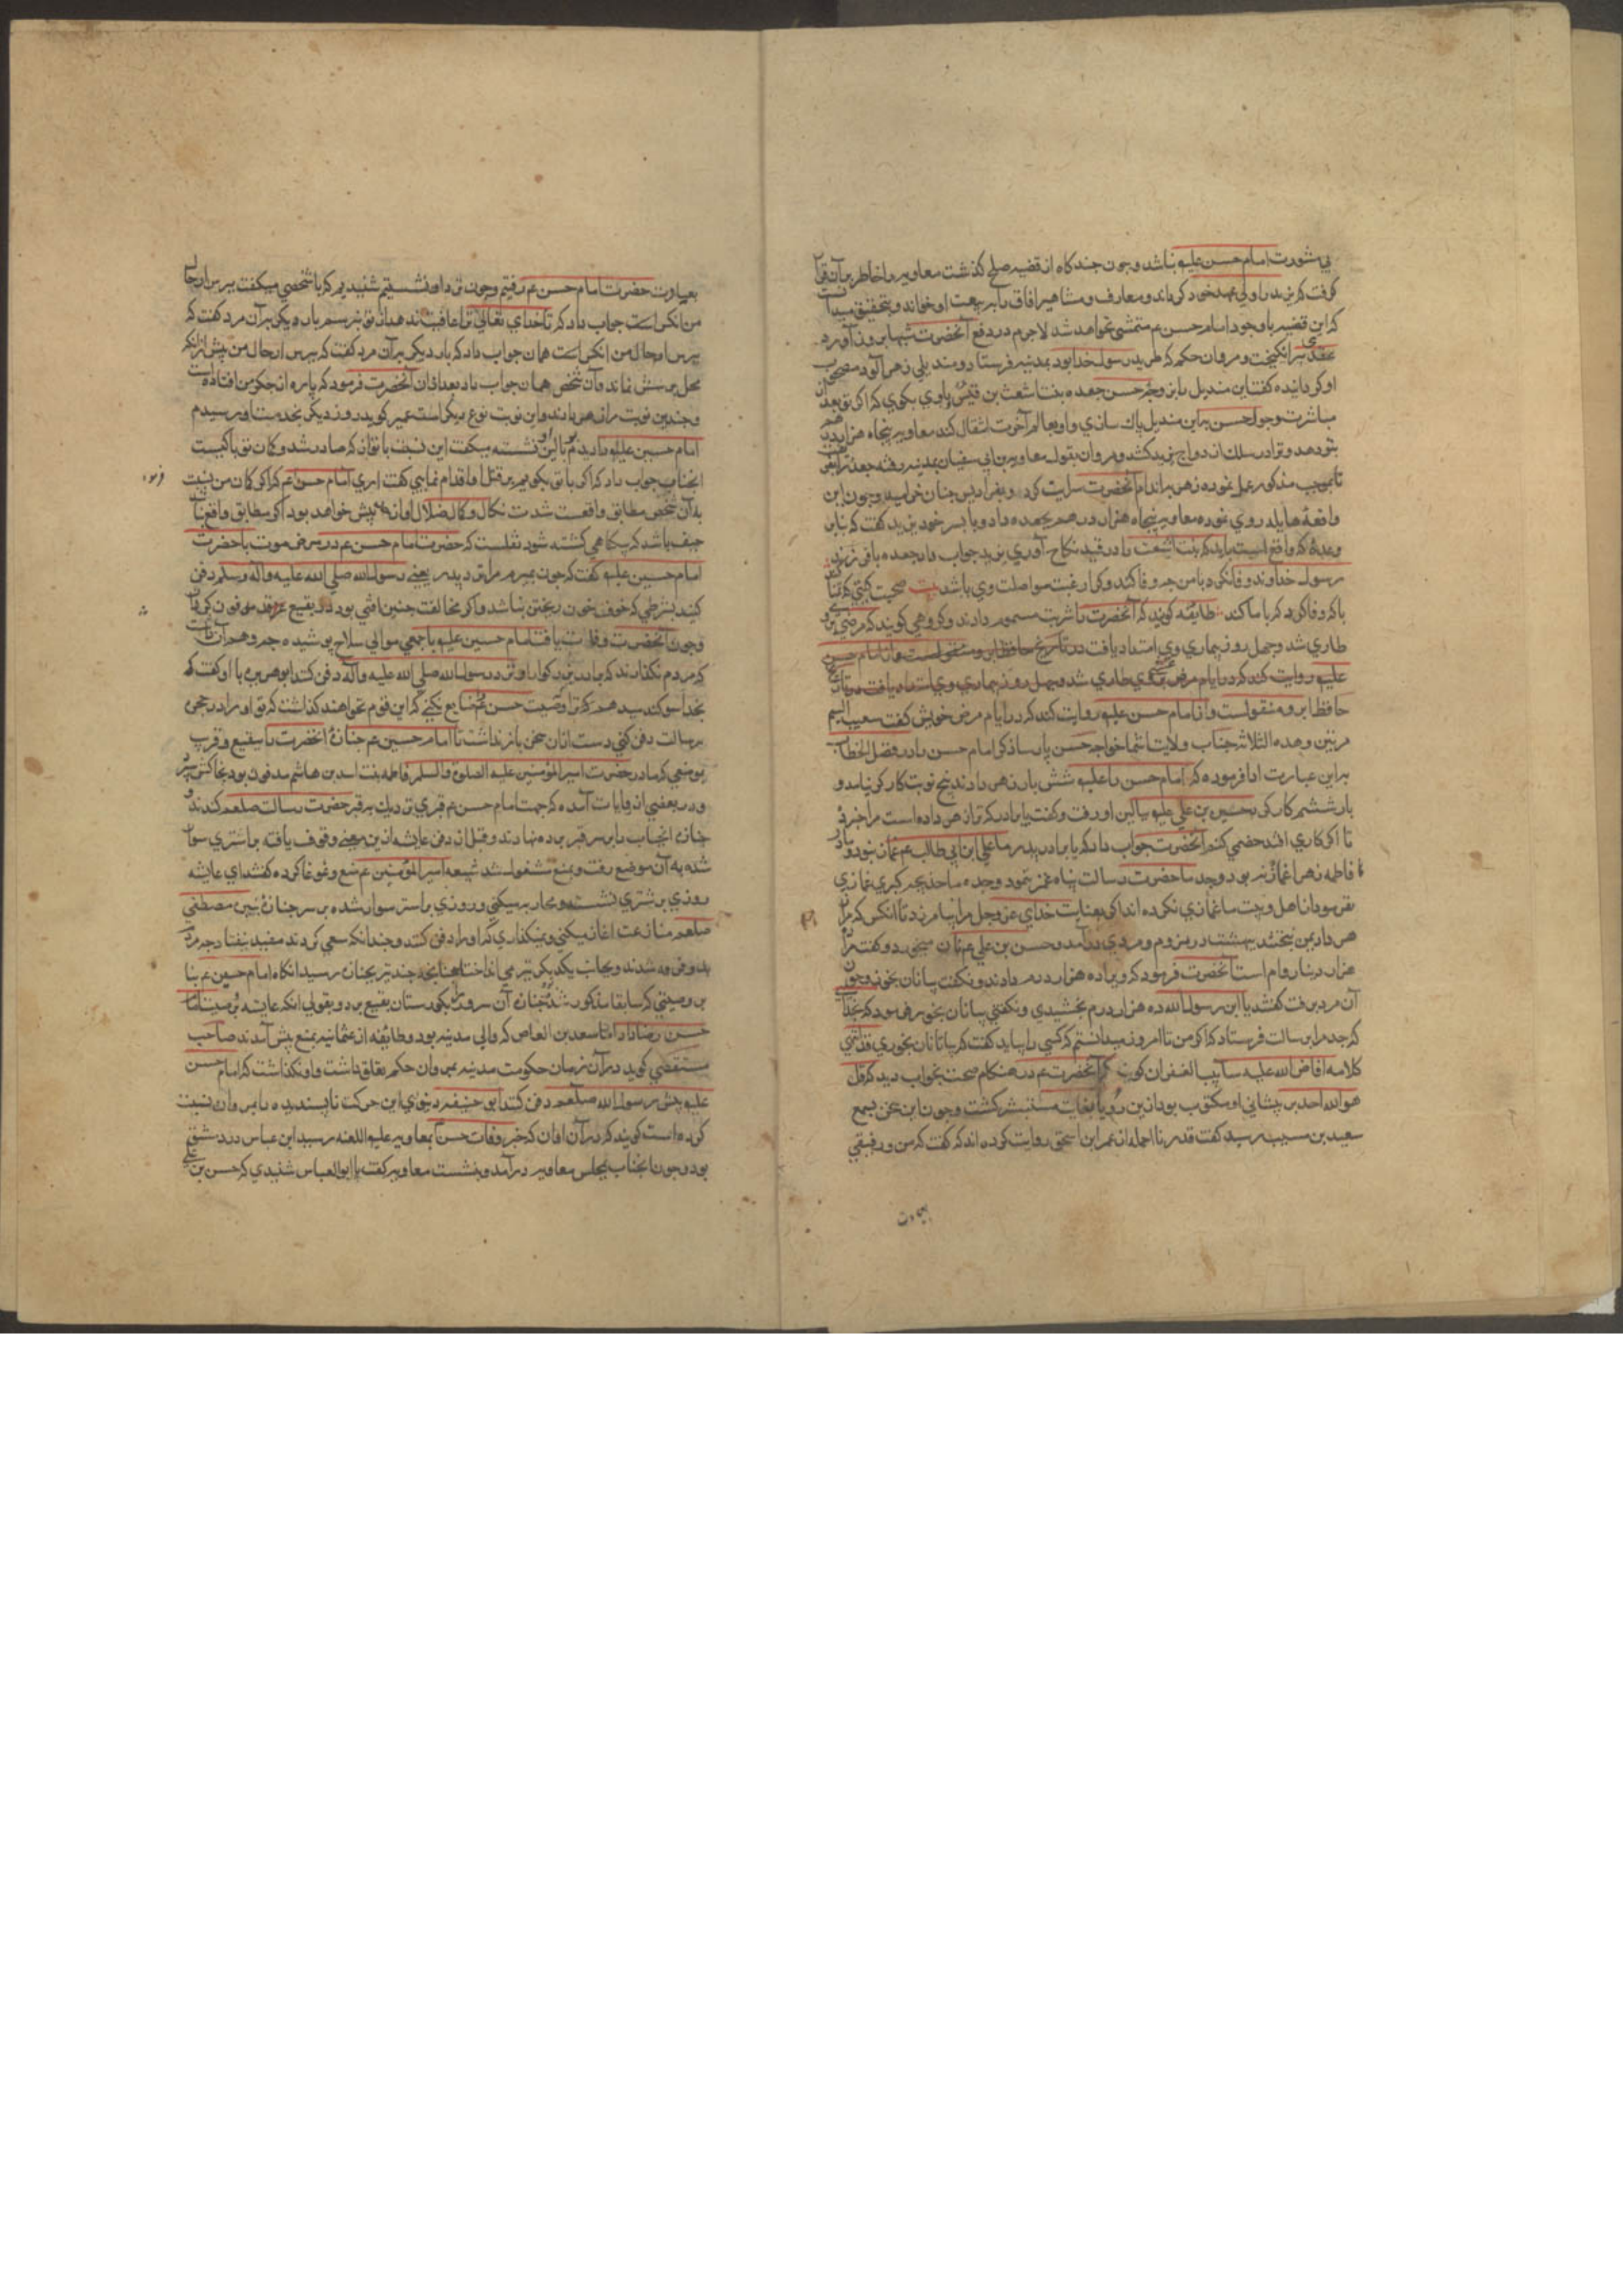 بی مشورت امام حسن علیه نباشد و چون چند کاه از قضیه صلح کذشت معاویه را خاطر بر آن قرار
کرفت که یزید را ولی عهد خود کرداند و معارف و مشاهیر افاق را ببیعت او خواند و بتحقیق میدانست
که این قضیه با وجود امام حسن ع متمشی نخواهد شد لاجرم در دفع آنحضرت
برانکیخت و مروان حکم که طرید رسول خدا بود بمدینه فرستاد و مندیلی زهر آلود مصحوب
او کردانیده کفت این مندیل را بزوجه حسن جعده بنت اشعث بن قیس و باوی بکوی که اکر تو بعد از
مباشرت وجود حسن براین مندیل پاک سازی و او بعالم آخرت انتقال کند معاویه پنجاه هزار درم
بتو دهد و ترا در سلک ازدواج یزید کشد مروان بقول معاویه بن ابی سفیان بمدینه رفته جعده
تا بموجب مذکور عمل نموده زهر بر اندام آنحضرت سرایت کرد و بفرادیس جنان خرامید و چون این
واقعه هایله روی نمود معاویه پنجاه هزار درهم بجعده داد و با پسر خود یزید کفت که بنابر
وعده که واقع است باید که بنت اشعث را در قید نکاح آوری یزید جواب داد جعده با فرزند
رسول خداوند وفا نکرد با من چه وفا کند و کرا رغبت مواصلت وی باشد بیت
با که وفا کرد که با ما کند طایفه کویند که آنحضرت را شربت مسموم دادند و کروهی کویند که مرضی بر وی
طاری شد و چهل روز بیماری وی امتداد یافت در تاریخ حافظ ابرو منقولست و از امام حسن
علیه روایت کند که در ایام مرض طاری شد و چهل روز بیماری وی امتداد یافت در تاریخ
حافظ ابرو منقولست و از امام حسن علیه روایت کند که در ایام مرض خویش کفت
مرتین و هذه الثلاثه جناب ولایت انتما خواجه حسن پارسا ذکر امام حسن را در فصل الخطاب
براین عبارت ادا فرموده که امام حسن را علیه شش بار زهر دادند پنج نوبت کارکر نیامد و
بار ششم کارکر حسین بن علی علیه ببالین او رفت و کفت یا برادر که ترا زهر داده است مرا خبر ده
تا اکر کاری افتد خصمی کنم آنحضرت جواب داد که یا برادر پدر ما علی ابن ابی طالب ع غماز نبود و مادر
ما فاطمه زهرا غمازه نبود و جد ما حضرت رسالت پناه غمز ننمود و جده ما خدیجه کبری غمازی
نفرمود از اهل و بیت ما غمازی نکرده اند اکر بعنایت خدای عز و جل مرا بیامرزد تا انکس که مرا
زهر داد بمن نبخشد ببهشت در نروم و مردی درآمد و حسن بن علی ع نان میخورد و کفت مرا
هزار دینار وام است آنحضرت فرمود که ویرا ده هزار درم دادند و نکفت بیا نان بخور و چون
آن مرد برفت کفتند یا ابن رسول الله ده هزار درم بخشیدی و نکفتی بیا نان بخور فرمود که بخدای
که جد مرا برسالت فرستاد که من تا امروز نمیدانستم که کسی را بباید کفت که بیا تا نان بخوری
کلامه افاض الله علیه سایب الغفران کویند که آنحضرت ع در هنکام صحت بخواب دید که قل
هو الله احد بر پیشانی او مکتوب بود ازین رؤیا بغایت مستبشر کشت و چون این سخن بسمع
سعید بن مسیب رسید کفت از عمر ابن اسحق روایت کرده اند که کفت که من و رفیقی
بعیادت
بعیادت حضرت امام حسن ع رفتیم و چون نزد او نشستیم شنیدیم که با شخصی میکفت بپرس از حال
من انکس است جواب داد که تا خدای تعالی ترا عافیت ندهد از تو نپرسم بار دیکر بآن مرد کفت که
بپرس از حال من انکس است همان جواب داد که بار دیکر بآن مرد کفت که بپرس از حال من پیش از آنکه
محل پرسش نماند و آن شخص همان جواب داد بعد از آن آنحضرت فرمود که پاره از جکر من افتاده است
و چندین نوبت مرا زهر دادند و این نوبت نوع دیکر است عمیر کوید روز دیکر بخدمت او رسیدم
امام حسین علیه را دیدم ببالین او نشسته میکفت این نسبت با تو از که صادر شد و کمان تو با کیست
انجناب جواب داد که اکر با تو بکویم بر قتل او اقدام نمایی کفت آری امام حسن ع که اکر کمان من نسبت
بآن شخص مطابق واقعست شدت نکال و کال ضلال او از پیش خواهد بود اکر مطابق واقع نیست
حیف باشد که بیکناهی کشته شود نقلست که حضرت امام حسن ع در مرض موت با حضرت
امام حسین علیه کفت که چون بمیرم مرا نزد پدر یعنی رسول الله صلی الله علیه و آله وسلم دفن
کنید بشرطی که خوف خون ریختن نباشد و اکر مخالفت چنین امری بود در بقیع غرقد مدفون کردان
و چون آنحضرت وفات یافت امام حسین علیه با جمعی موالی سلاح پوشیده
که مردم نکذارند که برادر بزرکوار او نزد رسول الله صلی الله علیه و آله دفن کند ابوهریره با او کفت که
بخدا سوکند میدهم که ترا وصیت حسن ع ضایع نکنی که این قوم نخواهند کذاشت که تو او را در حجره
رسالت دفن کنی دست ازان سخن باز نداشت تا امام حسین ع جنازه آنحضرت را ببقیع و قرب
موضعی که مادر حضرت امیر المؤمنین علیه الصلوة والسلم فاطمه بنت اسد بن هاشم مدفون بود بخاک
و در بعضی از روایات آمده که جهت امام حسن ع قبری نزدیک بر قبر حضرت رسالت صلعم کندند و
جنازه انجناب را بر سر قبر برده نهادند و قبل از دفن عایشه ازین معنی وقوف یافته بر استری سوار
شده بآن موضع رفت و بمنع مشغول شد شیعه امیر المؤمنین ع منع و غوغا کرده کفتند ای عایشه
روزی بر شتری نشسته محاربه میکنی و روزی بر استر سوار شده بر سر جنازه نبیره مصطفی
صلعم منازعت اغاز میکنی و نمیکذاری که او را دفن کنند و چندانکه سعی کردند مفید نیفتاد
دو فرقه شدند و بجانب یکدیکر تیر می انداختند چنانچه چند تیر بجنازه رسید انکاه امام حسین ع بنا
بر وصیتی که سابقا مذکور شد جنازه آن سرور را بکورستان بقیع برد و بقولی انکه عایشه بوصیت امام
حسن رضا داد اما سعید بن العاص که والی مدینه بود و طایفه از عثمانیه بمنع پیش آمدند صاحب
مستقصی کوید در آن زمان حکومت مدینه بمروان حکم تعلق داشت و او نکذاشت که امام حسن
علیه پیش رسول الله صلعم دفن کنند ابو حنیفه دینوری این حرکت ناپسندیده را بمروان نسبت
کرده است کویند که در آن اوان که خبر وفات حسن بمعاویه علیه اللعنه رسید ابن عباس در دمشق
بود و چون انجناب بمجلس معاویه درآمد و بنشست معاویه کفت یا ابو العباس شنیدی که حسن بن علی